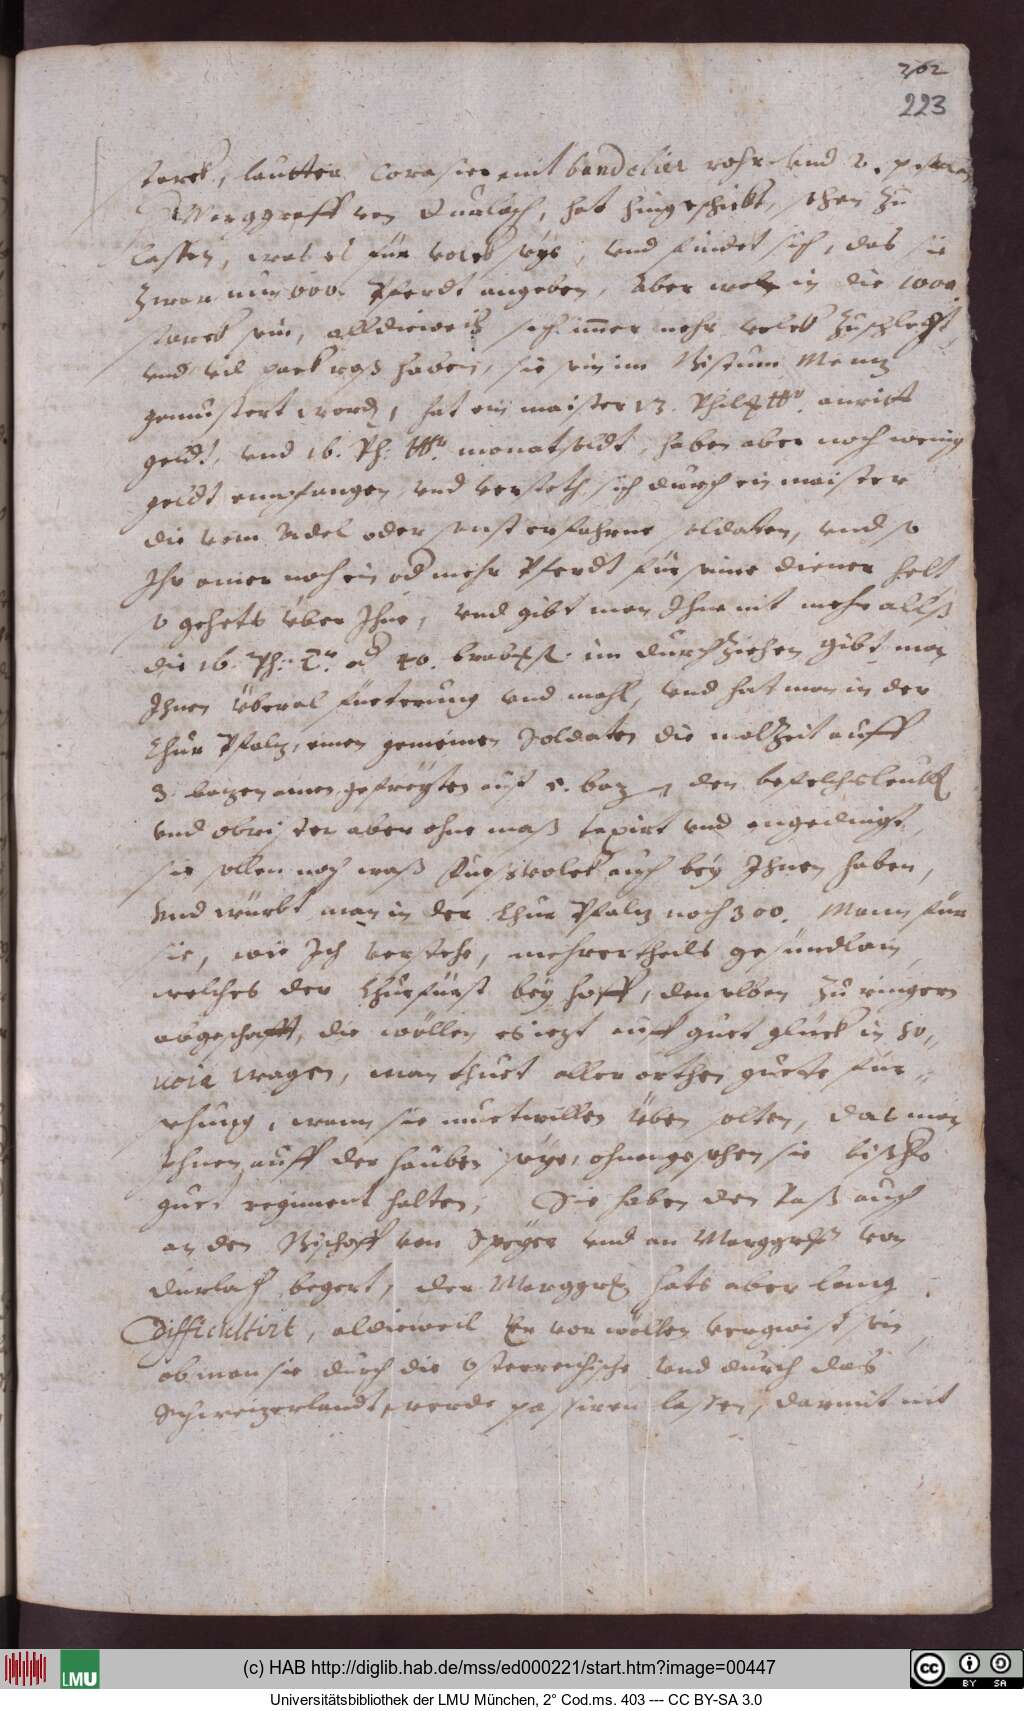 202
223
starck, lautter Corasier mit bandelier rohr und 2. pistolen
Marggraff von Durlach, hat hingeschickt, sehen zu
lassen, was es für volck seye, und findet sich, das sie
zwar nun 600. Pferdt angeben, Aber wol in die 1000
starck sein, alldieweil sich immer mehr volck zuschlecht,
und vil pack roß haben, sie sein im Bistum Mentz
gemustert word, hat ein maister 13. Phil. anritt
geldt, und 16. Ph: monatsoldt, haben aber noch wenig
geldt empfangen, und versteth sich durch ein maister
die vom Adel oder sonst erfahrne soldaten, und so
Ihr ainer noch ein od mehr Pferdt für seine diener helt
so gehets über Ihne, und gibt man Ihme nit mehr allß
die 16. Ph: od 40. im durchziehen gibt man
Ihnen überal fueterung und mahl, und hat man in der
Chur Pfaltz, einen gemeinen Soldaten die malzeit auff
3 batzen ainen gefreyten auf 5. batz den befelchsleutt
und obrister aber ohne maß taxirt und angedingt,
sie sollen noch waß fuesvolck auch bey Ihnen haben,
Und würbt man in der Chur Pfaltz noch 300. Mann für
sie, wie Ich verstehe, mehrertheils gesündlain,
welches der Churfürst bey hoff, denselben zu ringern
abgeschafft, die wöllen es iezt auff guet glück in Sa,,
voia wagen, man thuet aller orthen guete für=
sehung, wann sie muetwillen üben solten, das man
Ihnen auff der hauben seye, ohnangesehen sie bißhero
guet regiment halten, Sie haben den Paß auch
an den Bischoff von Speyer und an Marggraff von
Durlach begert, der Marggraff hats aber lang
difficultirt, aldieweil Er vor wöllen vergwist sein,
ob man sie durch die österreichische und durch das
Schweizerlandt, werde passiren lassen, darmit nit
(c) HAB http://diglib.hab.de/mss/ed000221/start.htm?image=00447
LMU
cc BY SA
Universitätsbibliothek der LMU München, 2° Cod.ms. 403 --- CC BY-SA 3.0